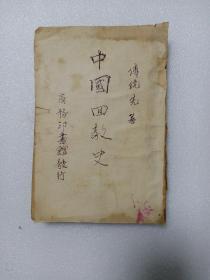 傅统先著
中國回教史
商務印書館發行